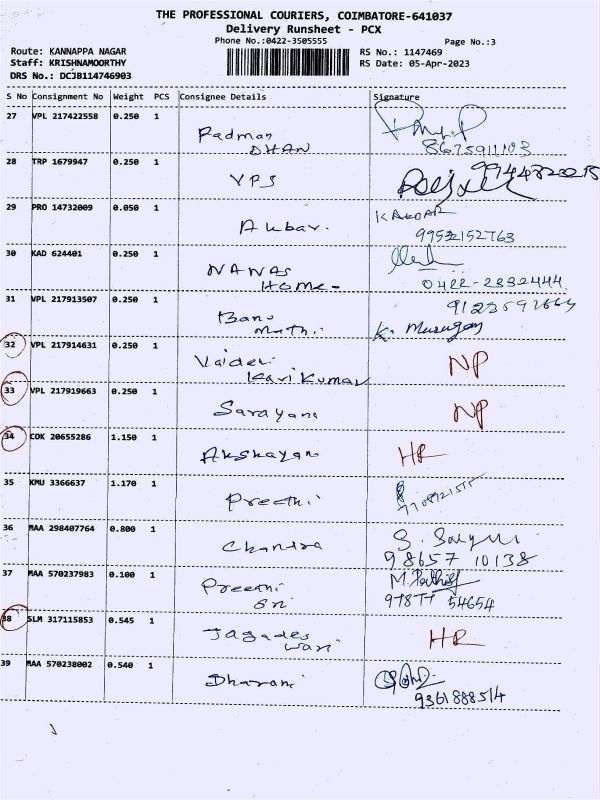 THE PROFESSIONAL COURIERS, COIMBATORE-641037
Delivery Runsheet - PCX
Phone No.:0422-3505555
Page No.:3
Route: KANNAPPA NAGAR
RS No.: 1147469
Staff: KRISHNAMOORTHY
RS Date: 05-Apr-2023
DRS No.: DCJB114746903
S No Consignment No Weight PCS Consignee Details Signature
27 VPL 217422558 0.250 1
Padman
DHAN
8675911103
28 TRP 1679947 0.250 1
VPS
29 PRO 14732009 0.050 1
Akbar.
9952152763
30 KAD 624401 0.250 1
NANAS
HOME-
0422-2332444
31 VPL 217913507 0.250 1
Banu
Mathi
K. Murugan
32 VPL 217914631 0.250 1
Vaidevi
Kavi Kumar
NP
33 VPL 217919663 0.250 1
Sarayana
NP
34 COK 20655286 1.150 1
Akshayan
HR
35 KMU 3366637 1.170 1
Preethi
36 MAA 298407764 0.800 1
Chandra
98657 10138
37 MAA 570237983 0.100 1
Preethi
Sri
54654
38 SLM 317115853 0.545 1
Jagades
wari
HR
39 MAA 570238002 0.540 1
Dharani
9361888514